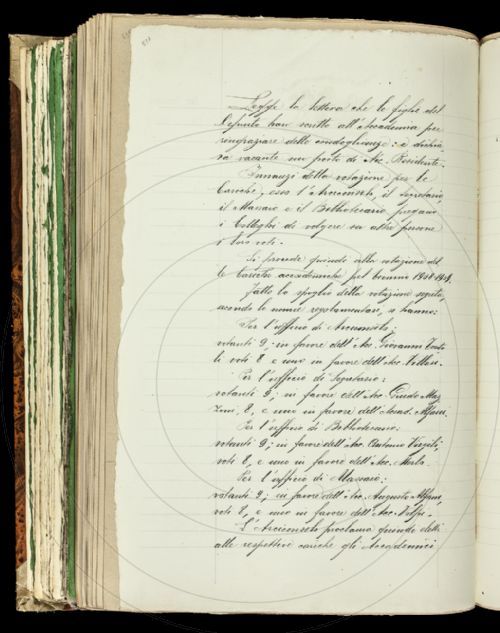 Legge la lettera che le figlie del
Defunto han scritto all'Accademia per
ringraziare delle condoglianze: e dichia
ra vacante un posto di Acc. Residente.
Innanzi della votazione per le
Cariche, esso l'Arciconsolo, il Segretario
il Massaro e il Bibliotecario pregano
i Colleghi di volgere su altre persone
i loro voti.
Si procede quindi alla votazione del
le Cariche accademiche pel biennio
Fatto lo spoglio della votazione segreta,
secondo le norme regolamentari, si hanno:
Per l'ufficio di Arciconsolo:
votanti 9; in favore dell'Acc. Giovanni Torto
li voti 8 e uno in favore dell'Acc. Villari.
Per l'ufficio di Segretario:
votanti 9; in favore dell'Acc. Guido Maz
zoni, 8, e uno in favore dell'Accad. Alfani.
Per l'ufficio di Bibliotecario:
votanti 9; in favore dell'Acc. Antonio Virgili,
voti 8, e uno in favore dell'Acc.
Per l'ufficio di Massaro:
votanti 9; in favore dell'Acc. Augusto Alfani,
voti 8, e uno in favore dell'Acc. Volpi.
L'Arciconsolo proclama quindi eletti
alle respettive cariche gli Accademici